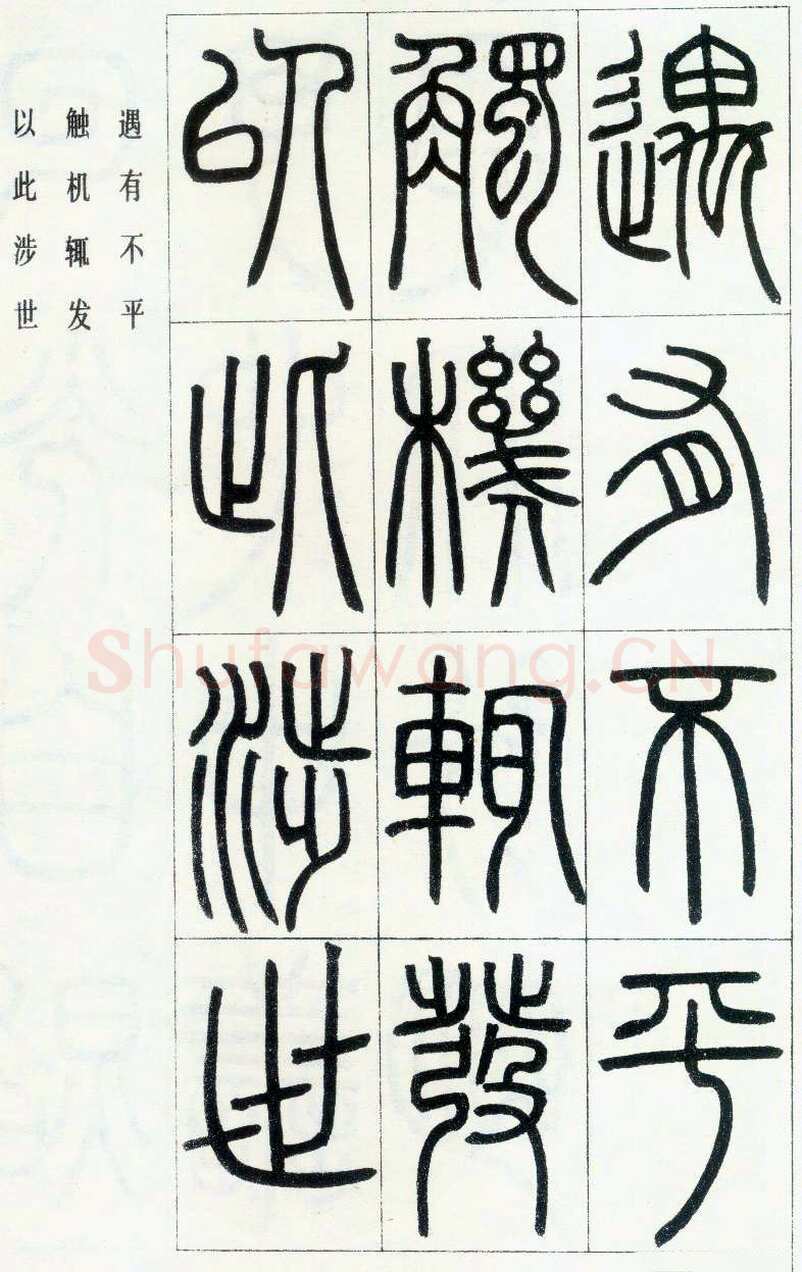 遇有不平
觸機輒發
以此涉世
遇有不平
触机辄发
以此涉世
Shufawang.CN